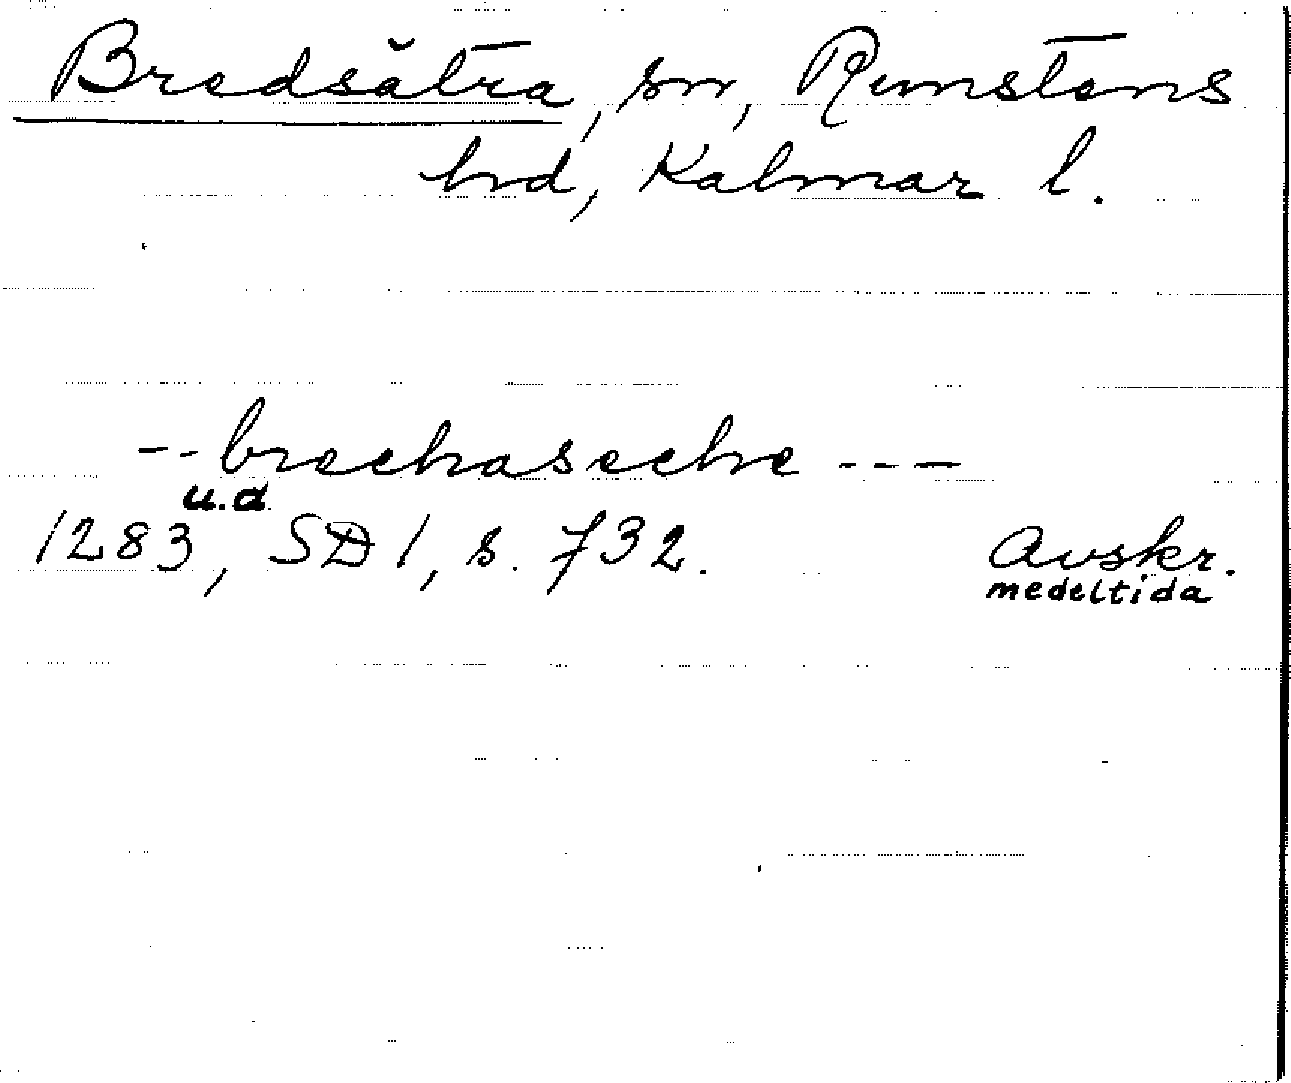 Bredsätra, sn, Runstens
hd, Kalmar l.
-- brechaseche ---
u.d.
1283, SD 1, s. 732. Avskr.
medeltida